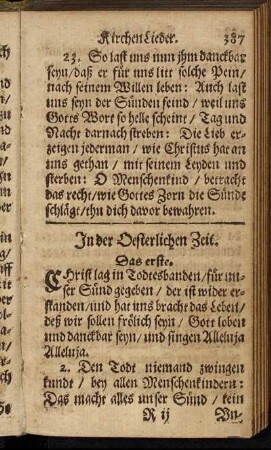 Kirchen Lieder. 387
23. So last uns nun jhm danckbar
seyn/daß er für uns litt solche Pein/
nach seinem Willen leben: Auch last
uns seyn der Sünden feind / weil uns
Gotts Wort so helle scheint / Tag und
Nacht darnach streben: Die Lieb er-
zeigen jederman / wie Christus hat an
uns gethan / mit seinem Leyden und
sterben: O Menschenkind / betracht
das recht/wie Gottes Zorn die Sünde
schlägt/thu dich davor bewahren.
In der Oesterlichen Zeit.
Das erste.
CHrist lag in Todtesbanden/für un-
ser Sünd gegeben / der ist wider er-
standen/und hat uns bracht das Leben/
deß wir sollen frölich seyn / Gott loben
und danckbar seyn/ und singen Alleluja
Alleluja.
2. Den Todt niemand zwingen
kundt / bey allen Menschenkindern:
Das macht alles unser Sünd / kein
R ij Un-